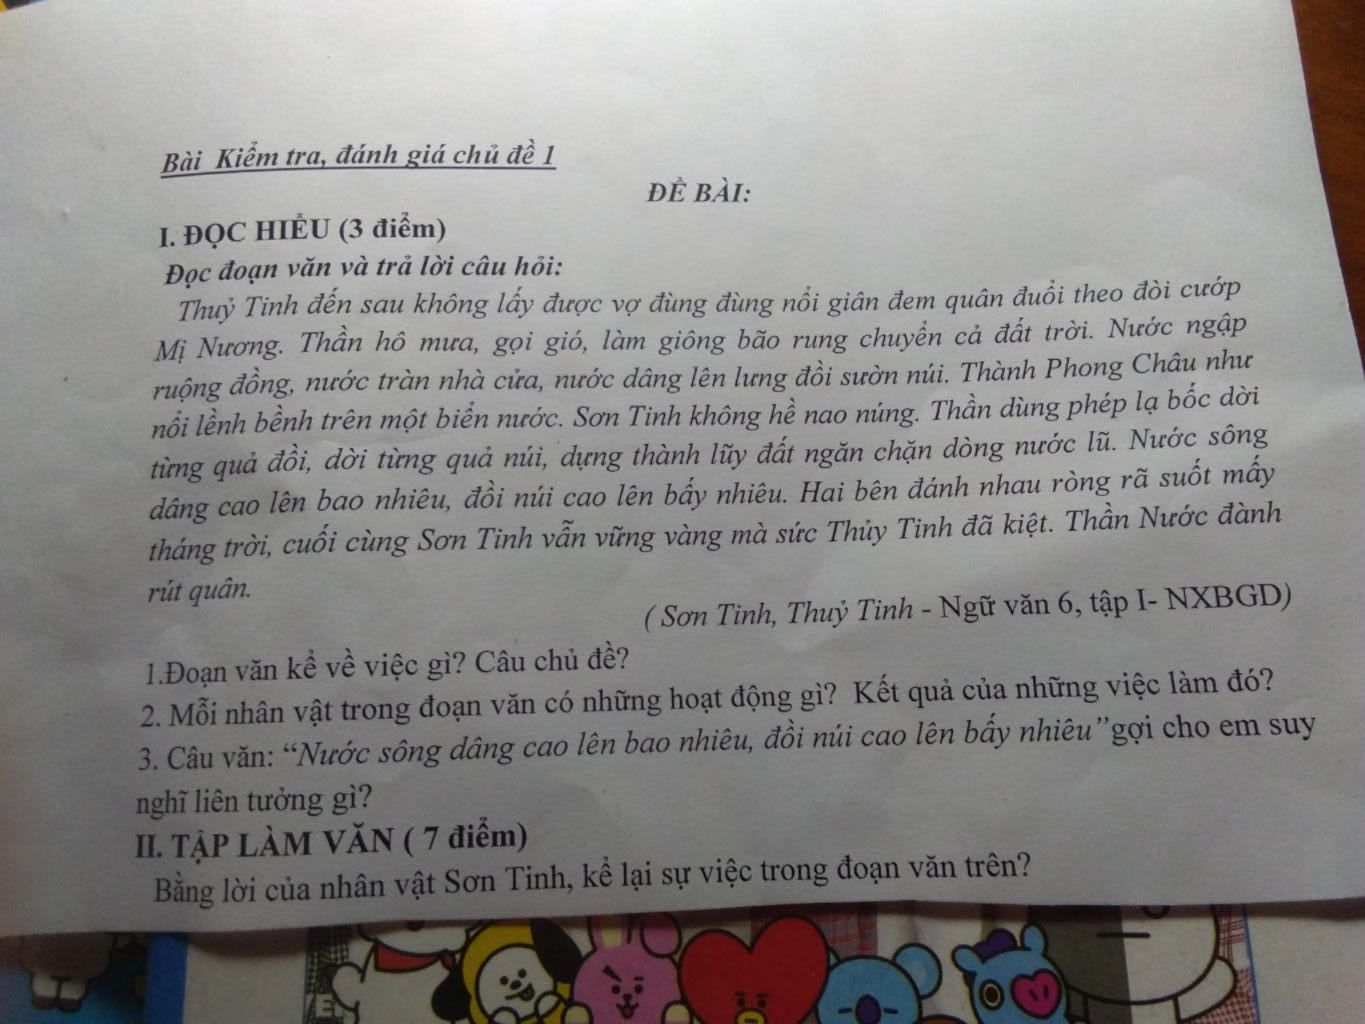 Bài Kiểm tra, đánh giá chủ đề 1
ĐỀ BÀI:
I. ĐỌC HIỂU (3 điểm)
Đọc đoạn văn và trả lời câu hỏi:
Thuỷ Tinh đến sau không lấy được vợ đùng đùng nổi giân đem quân đuổi theo đòi cướp
Mị Nương. Thần hô mưa, gọi gió, làm giông bão rung chuyển cả đất trời. Nước ngập
ruộng đồng, nước tràn nhà cửa, nước dâng lên lưng đồi sườn núi. Thành Phong Châu như
nổi lềnh bềnh trên một biển nước. Sơn Tinh không hề nao núng. Thần dùng phép lạ bốc dời
từng quả đồi, dời từng quả núi, dựng thành lũy đất ngăn chặn dòng nước lũ. Nước sông
dâng cao lên bao nhiêu, đồi núi cao lên bấy nhiêu. Hai bên đánh nhau ròng rã suốt mấy
tháng trời, cuối cùng Sơn Tinh vẫn vững vàng mà sức Thủy Tinh đã kiệt. Thần Nước đành
rút quân.
( Sơn Tinh, Thuỷ Tinh - Ngữ văn 6, tập I- NXBGD)
1.Đoạn văn kể về việc gì? Câu chủ đề?
2. Mỗi nhân vật trong đoạn văn có những hoạt động gì? Kết quả của những việc làm đó?
3. Câu văn: “Nước sông dâng cao lên bao nhiêu, đồi núi cao lên bấy nhiêu”gợi cho em suy
nghĩ liên tưởng gì?
II. TẬP LÀM VĂN ( 7 điểm)
Bằng lời của nhân vật Sơn Tinh, kể lại sự việc trong đoạn văn trên?